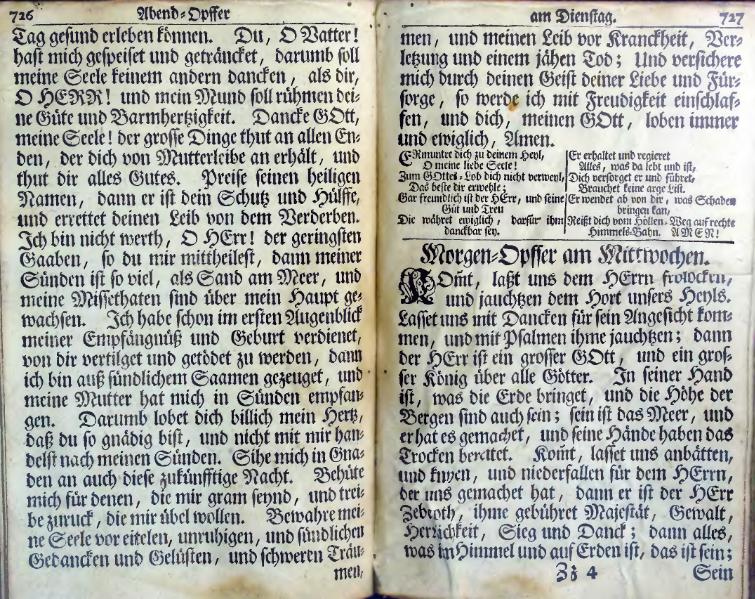 726 Abend-Opffer
Tag gesund erleben können. Du, O Vatter!
hast mich gespeiset und geträncket, darumb soll
meine Seele keinem andern dancken, als dir,
O HERR! und mein Mund soll rühmen dei-
ne Güte und Barmhertzigkeit. Dancke GOtt,
meine Seele! der grosse Dinge thut an allen En-
den, der dich von Mutterleibe an erhält, und
thut dir alles Gutes. Preise seinen heiligen
Namen, dann er ist dein Schutz und Hülffe,
und errettet deinen Leib von dem Verderben.
Ich bin nicht werth, O HErr! der geringsten
Gaaben, so du mir mittheilest, dann meiner
Sünden ist so viel, als Sand am Meer, und
meine Missethaten sind über mein Haupt ge-
wachsen. Ich habe schon im ersten Augenblick
meiner Empfängnüß und Geburt verdienet,
von dir vertilget und getödet zu werden, dann
ich bin auß sündlichem Saamen gezeuget, und
meine Mutter hat mich in Sünden empfan-
gen. Darumb lobet dich billich mein Hertz,
daß du so gnädig bist, und nicht mit mir han-
delst nach meinen Sünden. Sihe mich in Gna-
den an auch diese zukünfftige Nacht. Behüte
mich für denen, die mir gram seynd, und trei-
be zuruck, die mir übel wollen. Bewahre mei-
ne Seele vor eitelen, unruhigen, und sündlichen
Gedancken und Gelüsten, und schweren Träu-
men,
am Dienstag. 727
men, und meinen Leib vor Kranckheit, Ver-
letzung und einem jähen Tod; Und versichere
mich durch deinen Geist deiner Liebe und Für-
sorge, so werde ich mit Freudigkeit einschlaf-
fen, und dich, meinen GOtt, loben immer
und ewiglich, Amen.
ERmuntre dich zu deinem Heyl,
O meine liebe Seele!
Zum GOttes-Lob dich nicht verweyl,
Das beste dir erwehle;
Gar freundlich ist der HErr, und seine
Güt und Treu
Die währet ewiglich, darfür ihm
danckbar sey.
Er erhaltet und regieret
Alles, was da lebt und ist,
Dich versorget er und führet,
Brauchet keine arge List.
Er wendet ab von dir, was Schaden
bringen kan,
Reißt dich vom Höllen-Weg auf rechte
Himmels-Bahn. AMEN!
Morgen-Opffer am Mittwochen.
KOm̃t, laßt uns dem HErrn frolocken,
und jauchtzen dem Hort unsers Heyls.
Lasset uns mit Dancken für sein Angesicht kom-
men, und mit Psalmen ihme jauchtzen; dann
der HErr ist ein grosser GOtt, und ein gros-
ser König über alle Götter. In seiner Hand
ist, was die Erde bringet, und die Höhe der
Bergen sind auch sein; sein ist das Meer, und
er hat es gemachet, und seine Hände haben das
Trocken bereitet. Kom̃t, lasset uns anbätten,
und knyen, und niederfallen für dem HErrn,
der uns gemachet hat, dann er ist der HErr
Zebaoth, ihme gebühret Majestät, Gewalt,
Herrlichkeit, Sieg und Danck; dann alles,
was im Himmel und auf Erden ist, das ist sein;
Zz 4 Sein